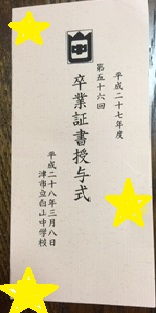 中
平成二十七年度
第五十六回
卒業証書授与式
平成二十八年三月八日
津市立白山中学校